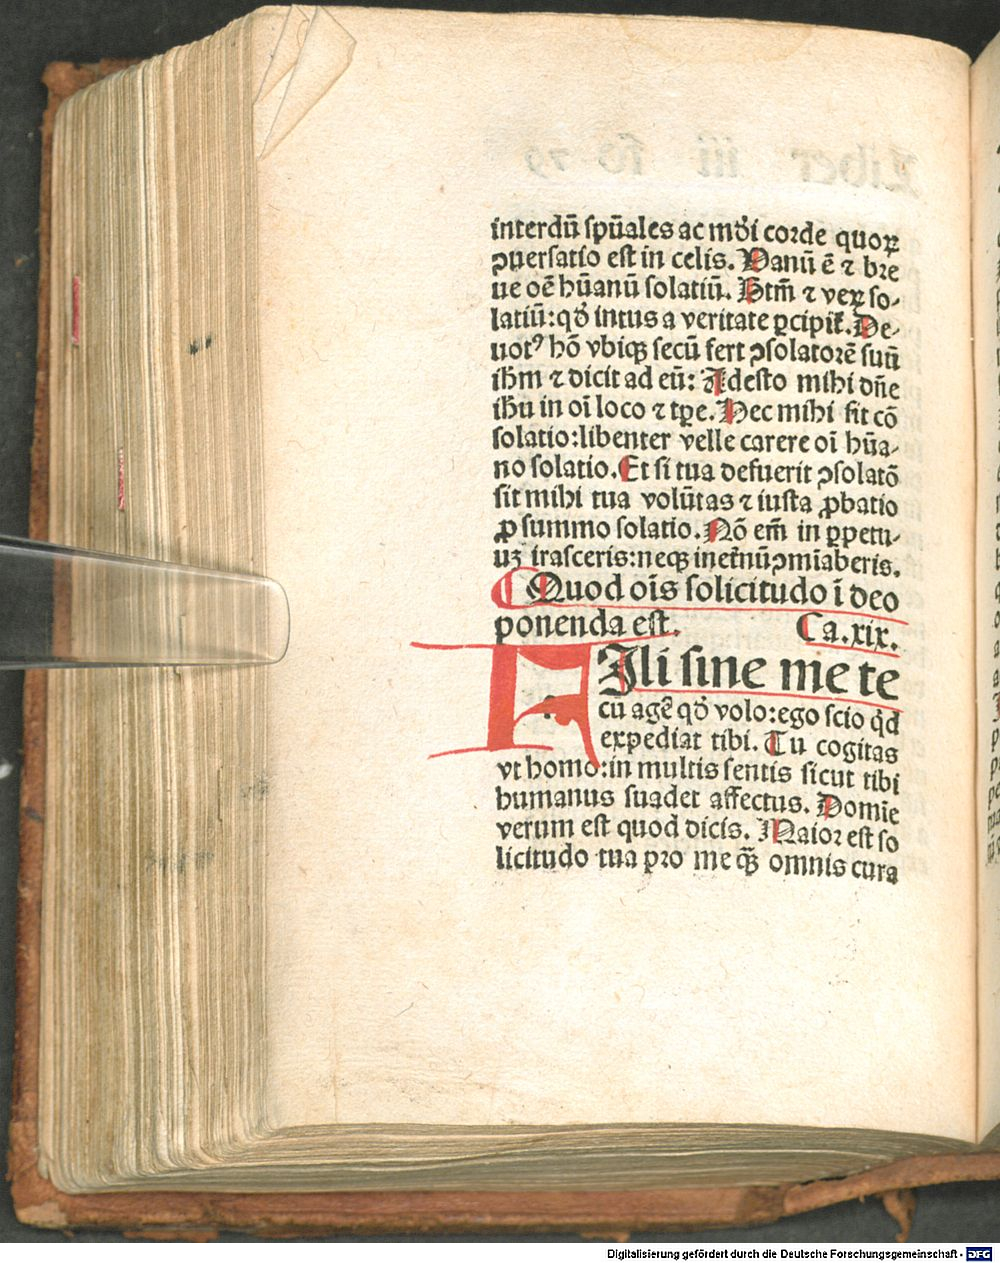 interdū spūales ac mūdi corde quoꝝ
ꝯuersatio est in celis. Vanū ē ⁊ bre
ue oē hūanū solatiū. Btm̄ ⁊ veꝝ so-
latiū: qḋ intus a veritate ꝑcipit̄. De-
uotꝰ hō vbiqꝫ secū fert ꝯsolatorē suū
ihm̄ ⁊ dicit ad eū: Adesto mihi dn̄e
ihū in oī loco ⁊ tꝑe. Hec mihi sit cō
solatio: libenter velle carere oī hūa-
no solatio. Et si tua defuerit ꝯsolatō
sit mihi tua volūtas ⁊ iusta ꝓbatio
ꝓ summo solatio. Nō em̄ in ꝑpetu-
uꝫ irasceris: neqꝫ inet̄nū ꝯmīaberis.
Quod oīs solicitudo ī deo
ponenda est. Ca. xix.
FIli sine me te
cū agē qḋ volo: ego scio qd̄
expediat tibi. Tu cogitas
vt homo: in multis sentis sicut tibi
humanus suadet affectus. Domīe
verum est quod dicis. Maior est so
licitudo tua pro me qꝫ̄ omnis cura
Digitalisierung gefördert durch die Deutsche Forschungsgemeinschaft - DFG